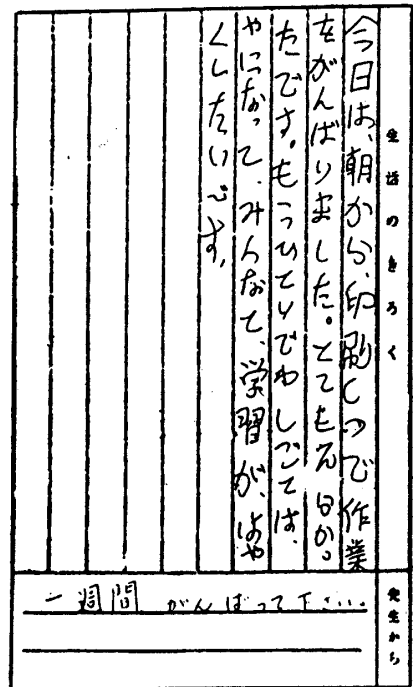 生活のきろく
今日は、朝から、印刷しつで作業
をがんばりました。とてもえ白か。
たです。もうひとりでわしごとは、
やになって、みんなて、学習が、はや
くしたいです。
先生から
一週間 がんばって下さい。